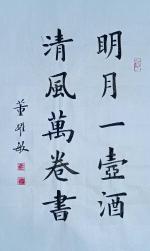 明月一壺酒
清風萬卷書
董雄敏